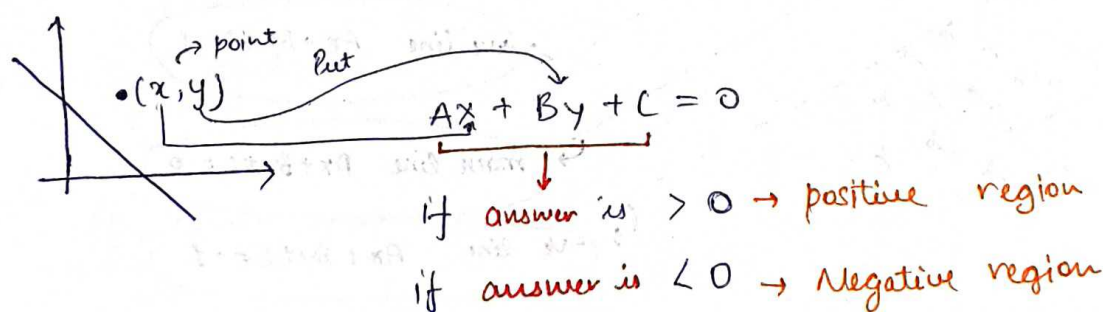 → point
• (x, y) Put
Ax + By + C = 0
if answer is > 0 → positive region
if answer is < 0 → Negative region